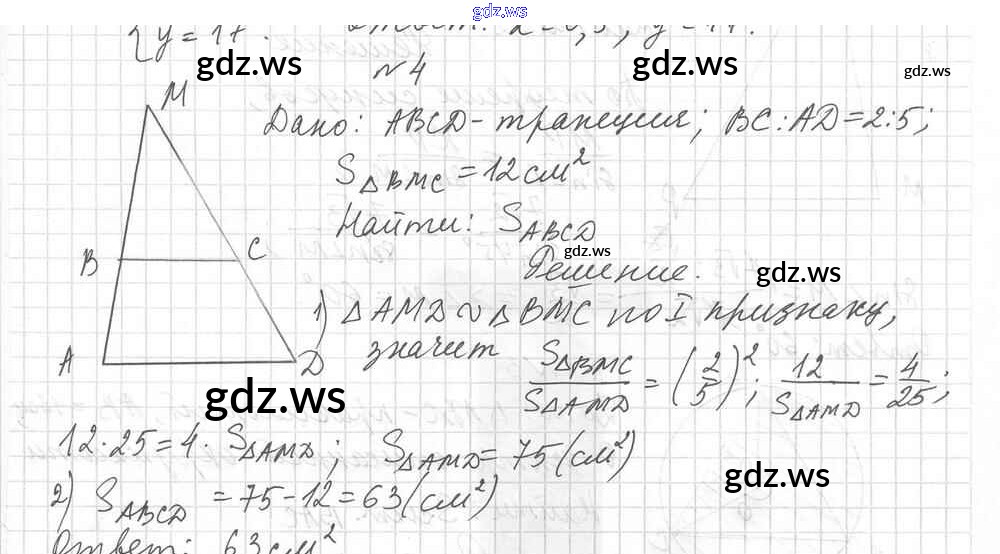 gdz.ws
{y = 17. Ответ: x = 0,5; y = 17.
gdz.ws gdz.ws gdz.ws
№4
M
Дано: ABCD - трапеция; BC:AD = 2:5;
S△BMC = 12 см²
Найти: SABCD
gdz.ws
B C
Решение. gdz.ws
1) △AMD ∾ △BMC по I признаку,
A D
значит S△BMC/S△AMD = (2/5)²; 12/S△AMD = 4/25;
gdz.ws
12·25 = 4·S△AMD; S△AMD = 75 (см²)
gdz.ws
2) SABCD = 75 - 12 = 63 (см²)
Ответ: 63 см²